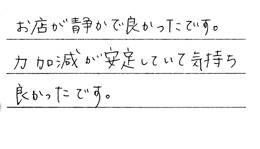 お店が静かで良かったです。
力加減が安定していて気持ち
良かったです。